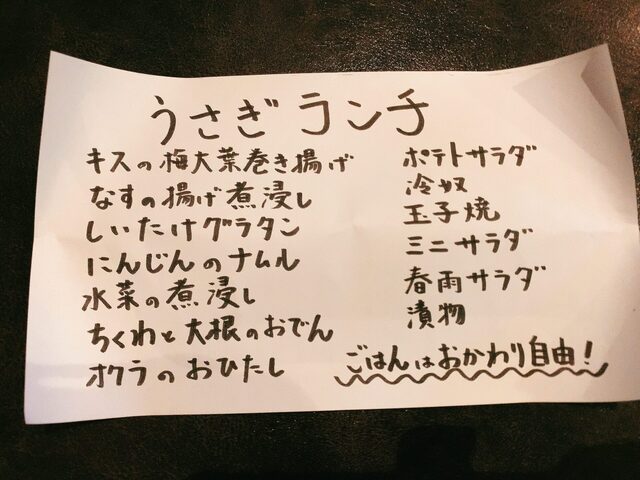 うさぎランチ
キスの梅大葉巻き揚げ
なすの揚げ煮浸し
しいたけグラタン
にんじんのナムル
水菜の煮浸し
ちくわと大根のおでん
オクラのおひたし
ポテトサラダ
冷奴
玉子焼
ミニサラダ
春雨サラダ
漬物
ごはんはおかわり自由!